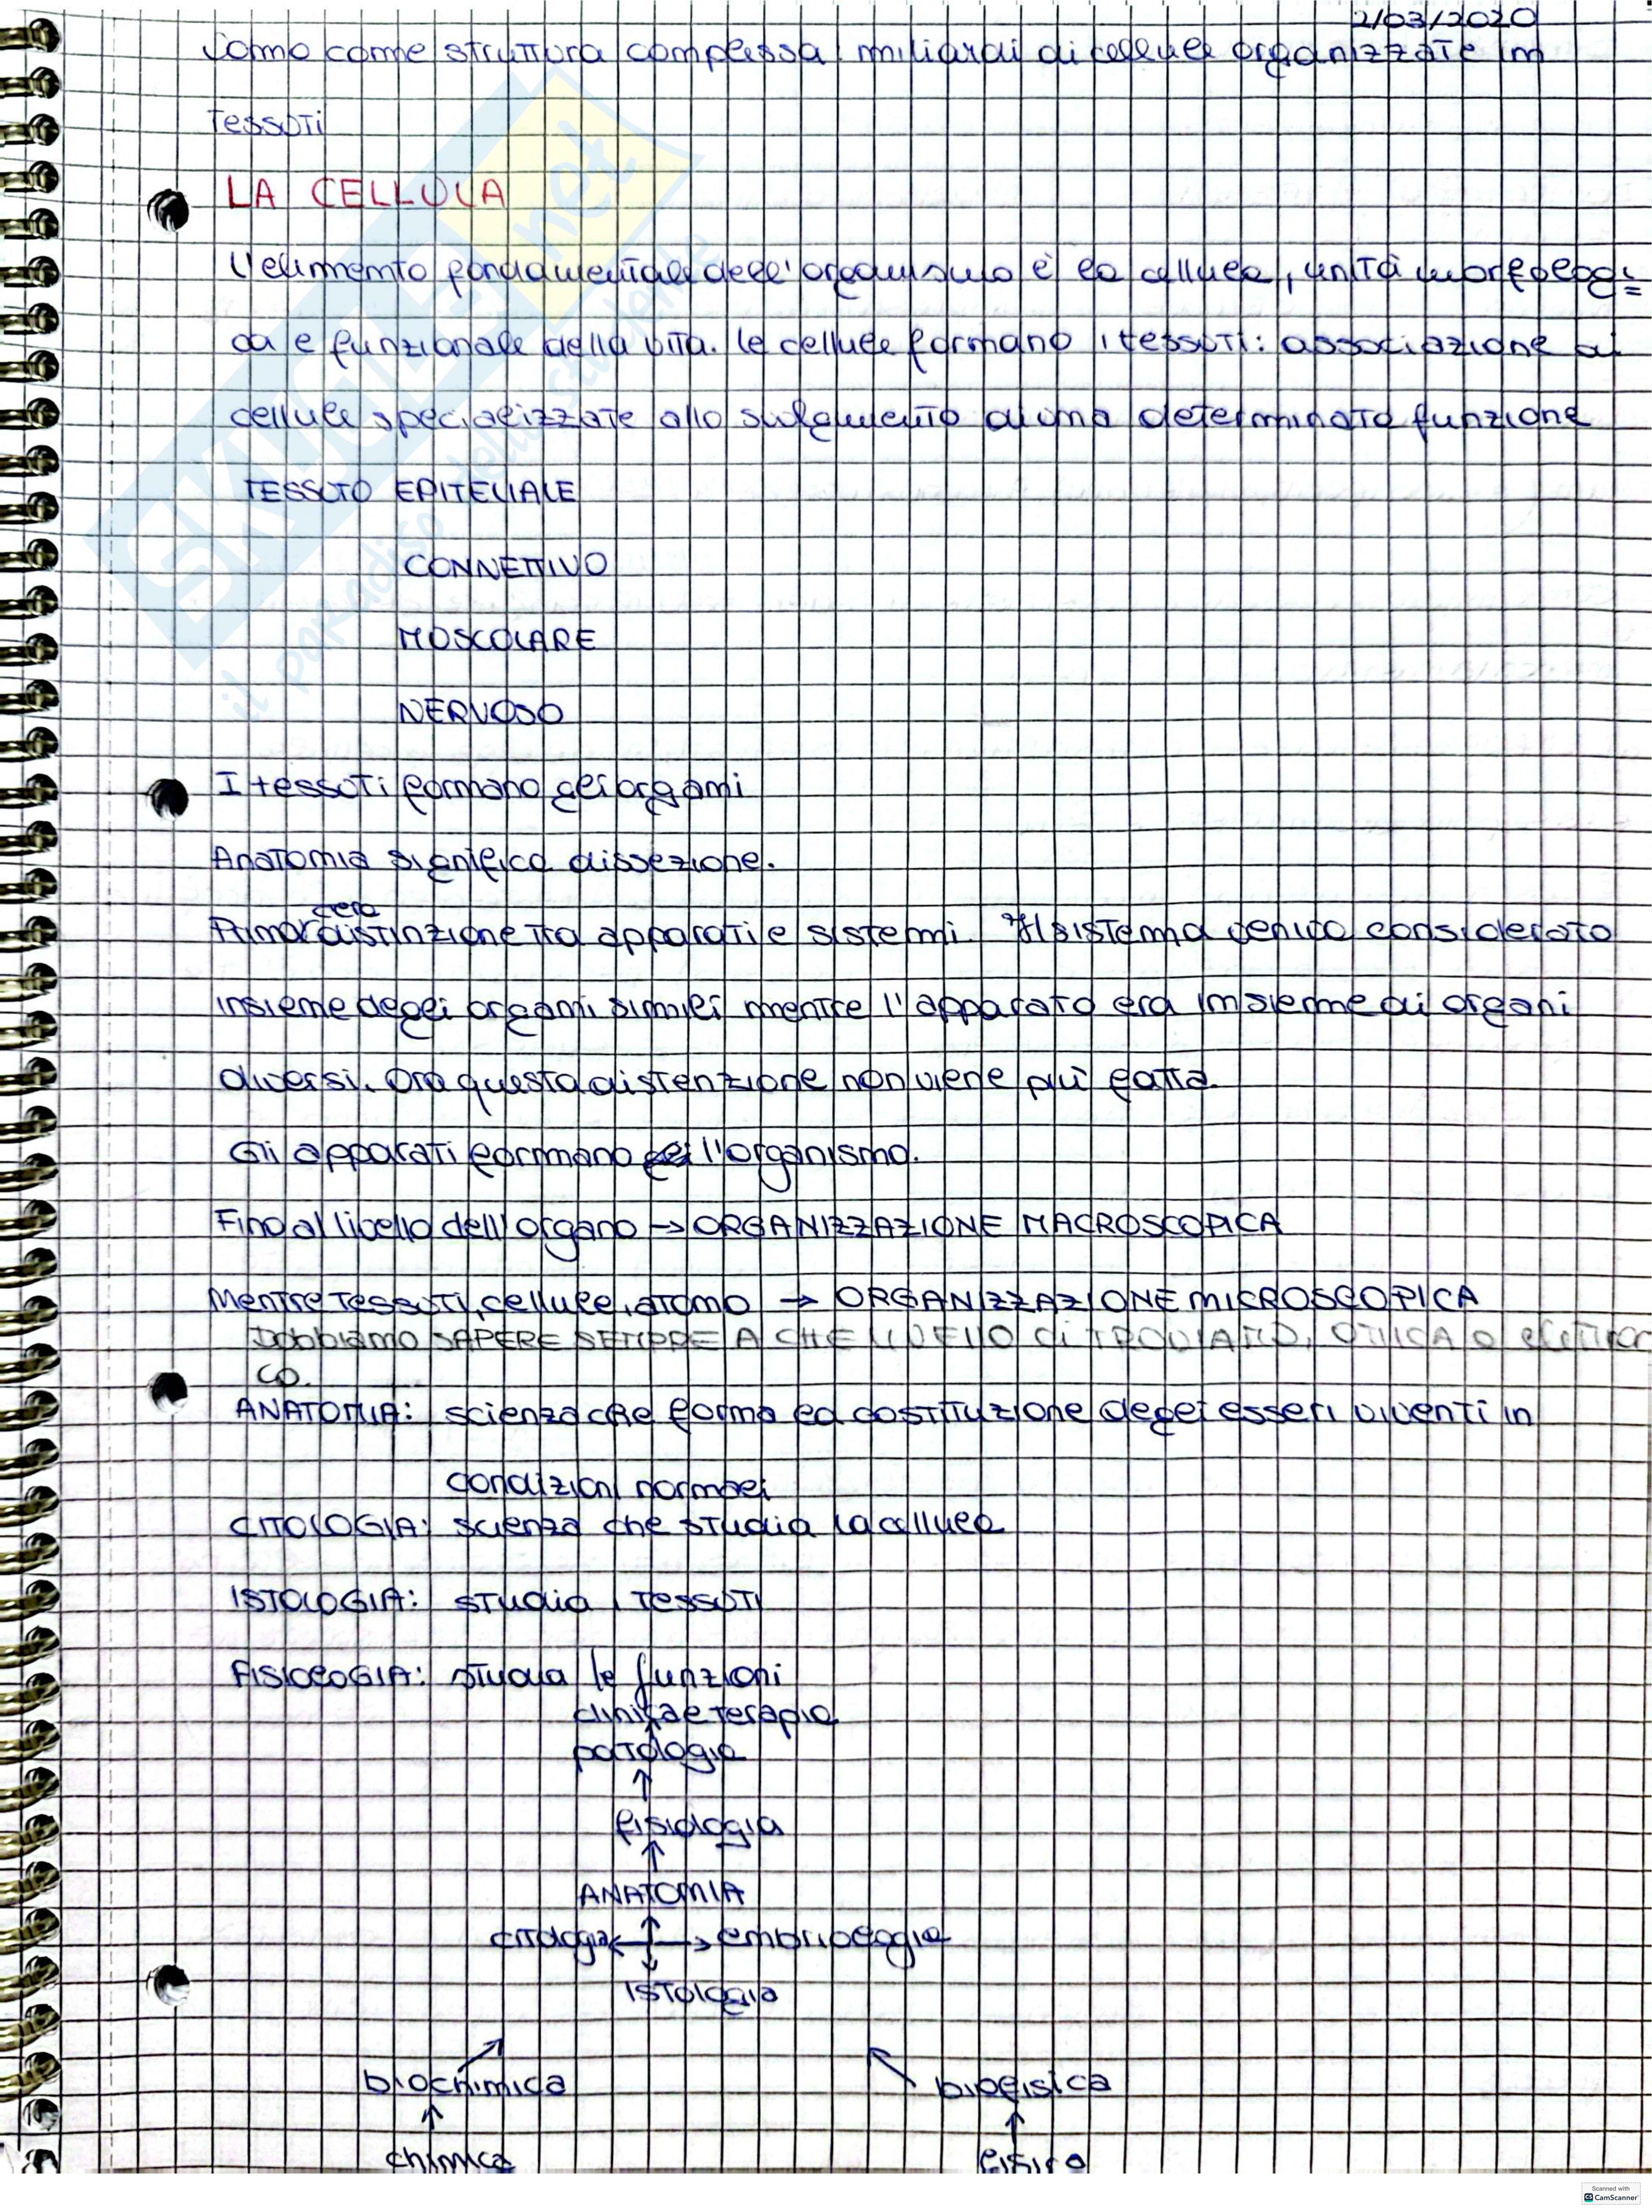 2/03/2020
Uomo come struttura complessa: miliardi di cellule organizzate in
tessuti
LA CELLULA
L'elemento fondamentale dell'organismo è la cellula, unità morfologi=
ca e funzionale della vita. le cellule formano i tessuti: associazione di
cellule specializzate allo svolgimento di una determinata funzione
TESSUTO EPITELIALE
CONNETTIVO
MUSCOLARE
NERVOSO
I tessuti formano gli organi
Anatomia significa dissezione.
Prima c'era distinzione tra apparati e sistemi. Il sistema veniva considerato
insieme degli organi simili mentre l'apparato era insieme di organi
diversi. Ora questa distenzione non viene più fatta.
Gli apparati formano l'organismo.
Fino al livello dell'organo → ORGANIZZAZIONE MACROSCOPICA
Mentre tessuti, cellule, atomo → ORGANIZZAZIONE MICROSCOPICA
Dobbiamo SAPERE SEMPRE A CHE LIVELLO CI TROVIAMO, OTTICA O elettroni
co.
ANATOMIA: scienza che forma ed costituzione degli esseri viventi in
condizioni normali
CITOLOGIA: scienza che studia la cellula
ISTOLOGIA: studia i tessuti
FISIOLOGIA: studia le funzioni
clinica e terapia
patologia
↑
fisiologia
↑
ANATOMIA
citologia ← ↑ → embriologia
↓
istologia
biochimica biofisica
↑ ↑
chimica fisica
SKUOLA.net
il paradiso dello studente
Scanned with
CS CamScanner